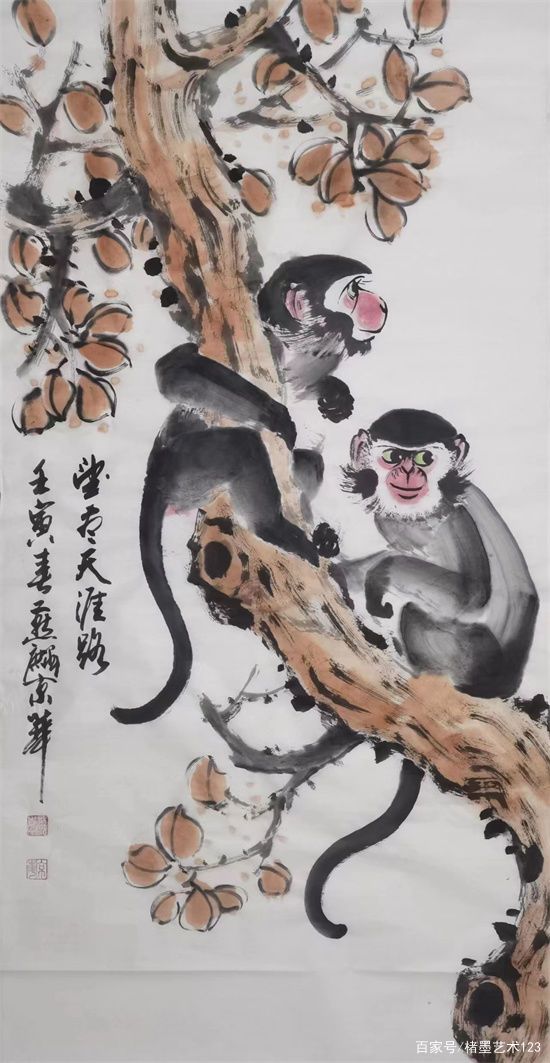 望尽天涯路
壬寅春燕麟京華
百家号/楮墨艺术123